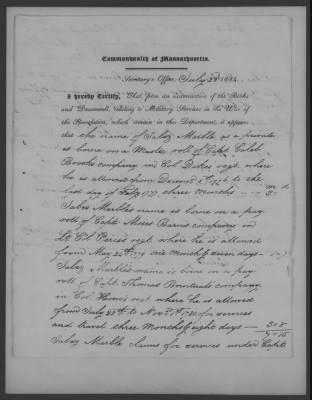 Commonwealth of Massachusetts.
Secretary's Office, July 22d 1834
I hereby Certify, That from an examination of the Books
and Documents, relating to Military Services in the War of
the Revolution, which remain in this Department, it appears
that the name of Jabez Marble as a private
is borne on a Muster roll of Capt Caleb
Brooks company in Col Dikes regt. where
he is allowed from December to the
last day of Feby 1777 three months
Jabez Marbles name is borne on a pay
roll of Capt Moses Barns company in
Lt Col Peirces regt where he is allowed
from May one month & seven days -
Jabez Marbles name is borne on a pay
roll of Capt Thomas company
in Col regt where he is allowed
from July to Nov 1780 for services
and travel three Months & eight days - 3=8
Jabez Marble claims for services under Capt